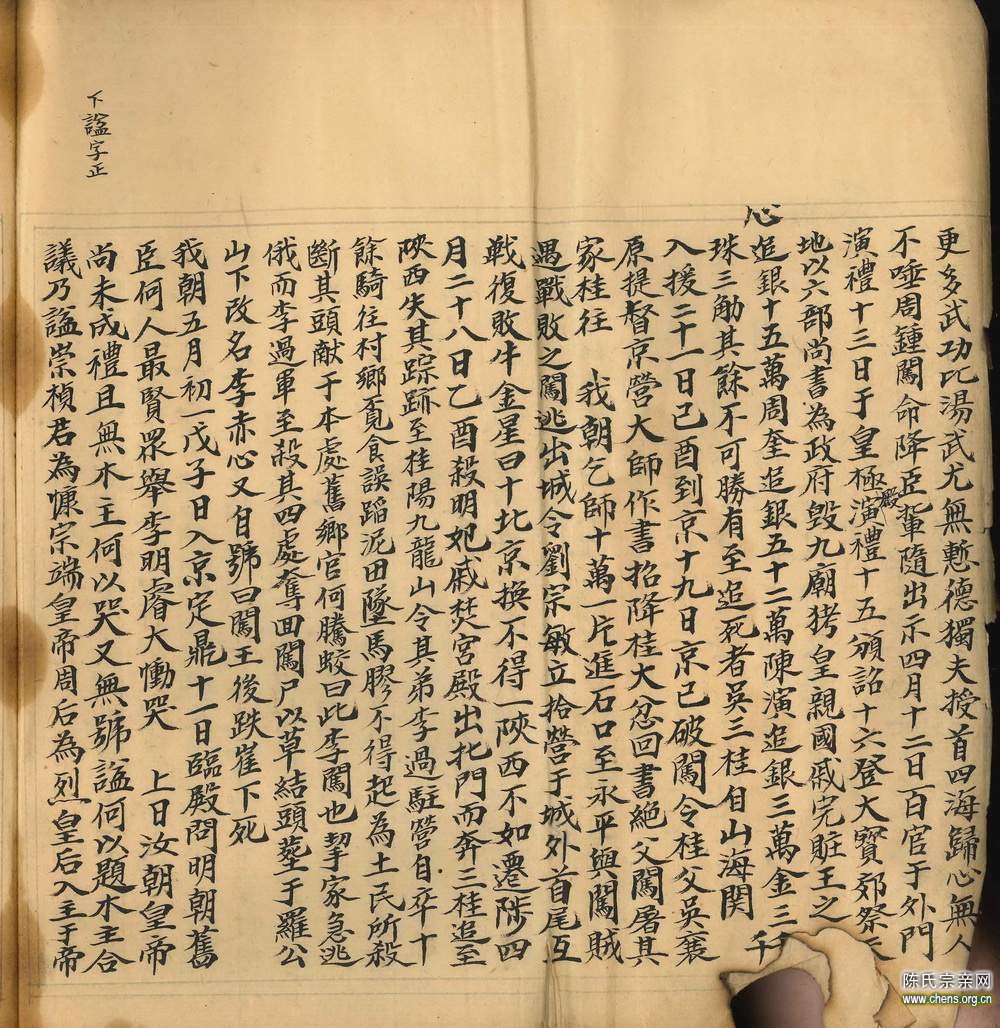 更多武功比湯武尤無慙德獨夫授首四海歸心無人
不唾周鍾闖命降臣輩隨出示四月十二日百官于外門
演禮十三日于皇極殿演禮十五頒詔十六登大寶郊祭天
地以六部尚書為政府毀九廟拷皇親國戚完賍王之
心追銀十五萬周奎追銀五十二萬陳演追銀三萬金三千
珠三觔其餘不可勝有至追死者吳三桂自山海関
入援二十一日己酉到京十九日京已破闖令桂父吳襄
原提督京營大師作書招降桂大忿回書絕父闖屠其
家桂往 我朝乞師十萬一片進石口至永平與闖賊
遇戰敗之闖逃出城令劉宗敏立拾營于城外首尾互
戰復敗牛金星曰十北京換不得一陝西不如遷陟四
月二十八日乙酉殺明妃戚焚宮殿出北門而奔三桂追至
陝西失其踪跡至桂陽九龍山令其弟李過駐營自卒十
餘騎往村鄉覓食誤蹈泥田墜馬膠不得起為土民所殺
斷其頭献于本處舊鄉官何騰蛟曰此李闖也挈家急逃
俄而李過軍至殺其四處奪回闖尸以草結頭葬于羅公
山下改名李赤心又自號曰闖王後跌崔下死
我朝五月初一戊子日入京定鼎十一日臨殿問明朝舊
臣何人最賢眾舉李明睿大慟哭 上曰汝朝皇帝
尚未成禮且無木主何以哭又無號謚何以題木主合
議乃謚崇楨君為懷宗端皇帝周后為烈皇后入主于帝
下謚字正
陈氏宗亲网
www.chens.org.cn